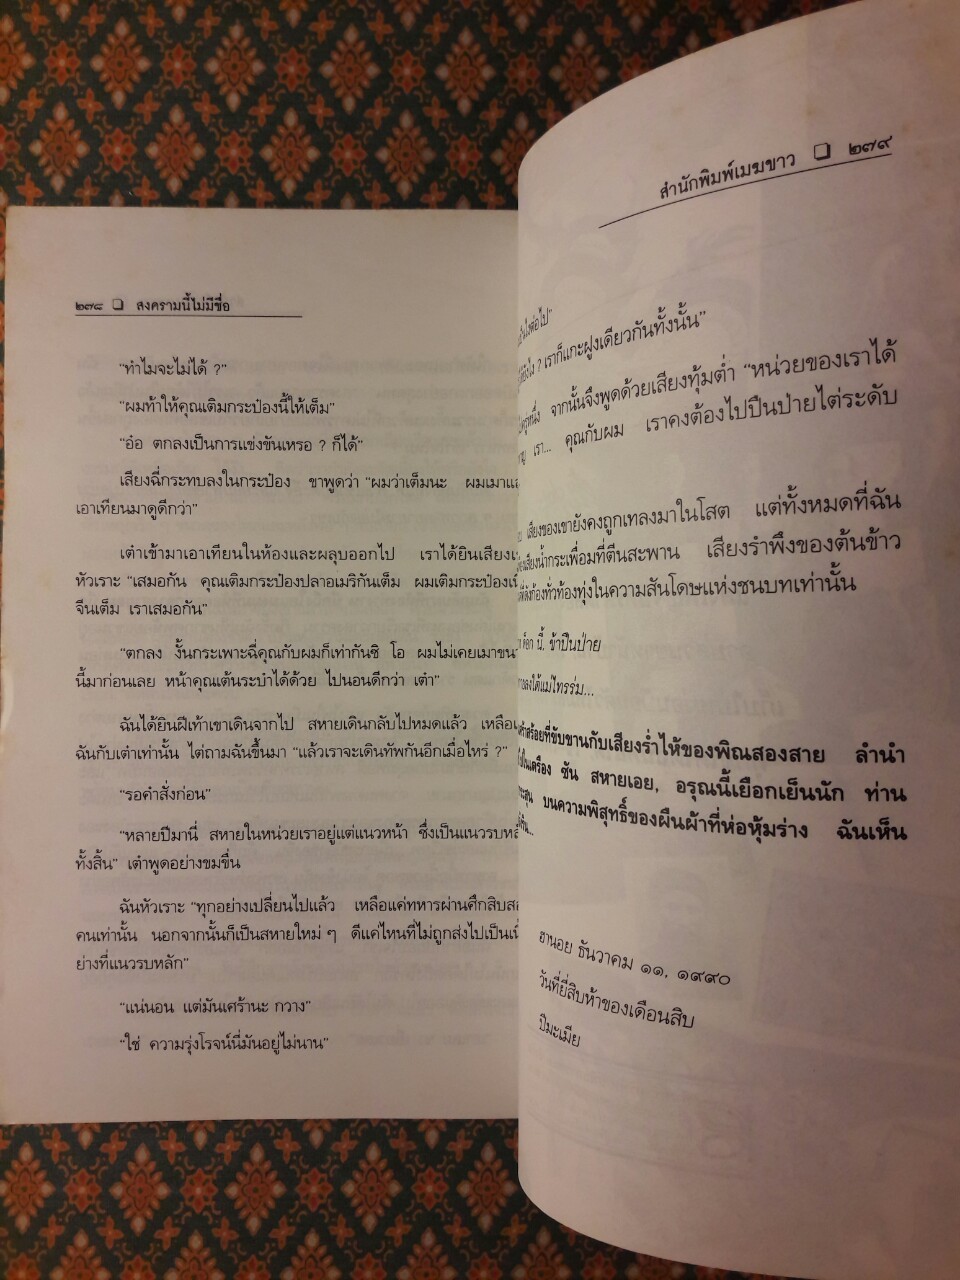 ๒๗๘ ❑ สงครามนี้ไม่มีชื่อ
“ทำไมจะไม่ได้ ?”
“ผมท้าให้คุณเติมกระป๋องนี้ให้เต็ม”
“อ๋อ ตกลงเป็นการแข่งขันเหรอ ? ก็ได้”
เสียงฉี่กระทบลงในกระป๋อง ขาพูดว่า “ผมว่าเต็มนะ ผมเมาแล
เอาเทียนมาดูดีกว่า”
เต๋าเข้ามาเอาเทียนในห้องและผลุบออกไป เราได้ยินเสียง
หัวเราะ “เสมอกัน คุณเติมกระป๋องปลาอเมริกันเต็ม ผมเติมกระป๋อง
จีนเต็ม เราเสมอกัน”
“ตกลง งั้นกระเพาะฉี่คุณกับผมก็เท่ากันซิ โอ ผมไม่เคยเมาขน
นี้มาก่อนเลย หน้าคุณเต้นระบำได้ด้วย ไปนอนดีกว่า เต๋า”
ฉันได้ยินฝีเท้าเขาเดินจากไป สหายเดินกลับไปหมดแล้ว เหลือ
ฉันกับเต๋าเท่านั้น ไต่ถามฉันขึ้นมา “แล้วเราจะเดินทัพกันอีกเมื่อไหร่ ?”
“รอคำสั่งก่อน”
“หลายปีมานี่ สหายในหน่วยเราอยู่แต่แนวหน้า ซึ่งเป็นแนวรบ
ทั้งสิ้น” เต๋าพูดอย่างขมขื่น
ฉันหัวเราะ “ทุกอย่างเปลี่ยนไปแล้ว เหลือแค่ทหารผ่านศึกสิบ
คนเท่านั้น นอกจากนั้นก็เป็นสหายใหม่ ๆ ดีแค่ไหนที่ไม่ถูกส่งไปเป็น
ย่างที่แนวรบหลัก”
“แน่นอน แต่มันเศร้านะ กวาง”
“ใช่ ความรุ่งโรจน์นี่มันอยู่ไม่นาน”
สำนักพิมพ์เมฆขาว ❑ ๒๗๙
ต่อไป”
? เราก็แกะฝูงเดียวกันทั้งนั้น”
จากนั้นจึงพูดด้วยเสียงทุ้มต่ำ “หน่วยของเราได้
เรา... คุณกับผม เราคงต้องไปปีนป่ายไต่ระดับ
เสียงของเขายังคงถูกเทลงมาในโสต แต่ทั้งหมดที่ฉัน
เสียงน้ำกระเพื่อมที่ตีนสะพาน เสียงรำพึงของต้นข้าว
ก้องทั่วท้องทุ่งในความสันโดษแห่งชนบทเท่านั้น
นี้. ข้าปีนป่าย
ใต้แม่ไทรร่ม...
สร้อยที่ขับขานกับเสียงร่ำไห้ของพิณสองสาย ลำนำ
เครื่อง ซัน สหายเอย, อรุณนี้เยือกเย็นนัก ท่าน
บนความพิสุทธิ์ของผืนผ้าที่ห่อหุ้มร่าง ฉันเห็น
ฮานอย ธันวาคม ๑๑, ๑๙๙๐
วันที่ยี่สิบห้าของเดือนสิบ
ปีมะเมีย